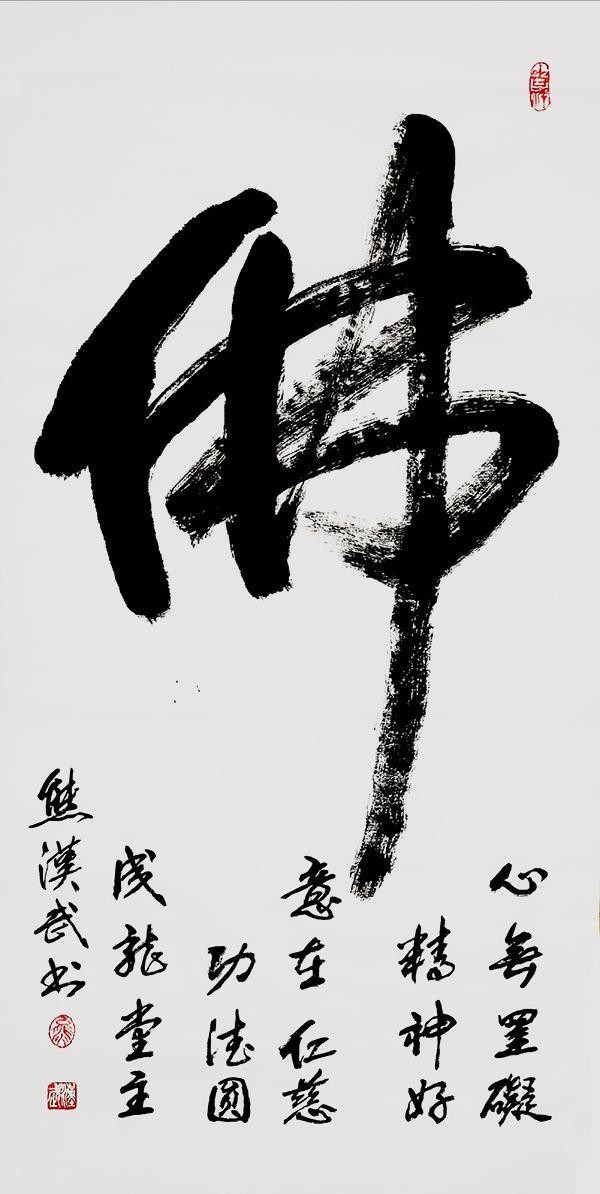 佛
心無罣礙
精神好
意在仁慈
功德圓
成龍堂主
熊漢武书